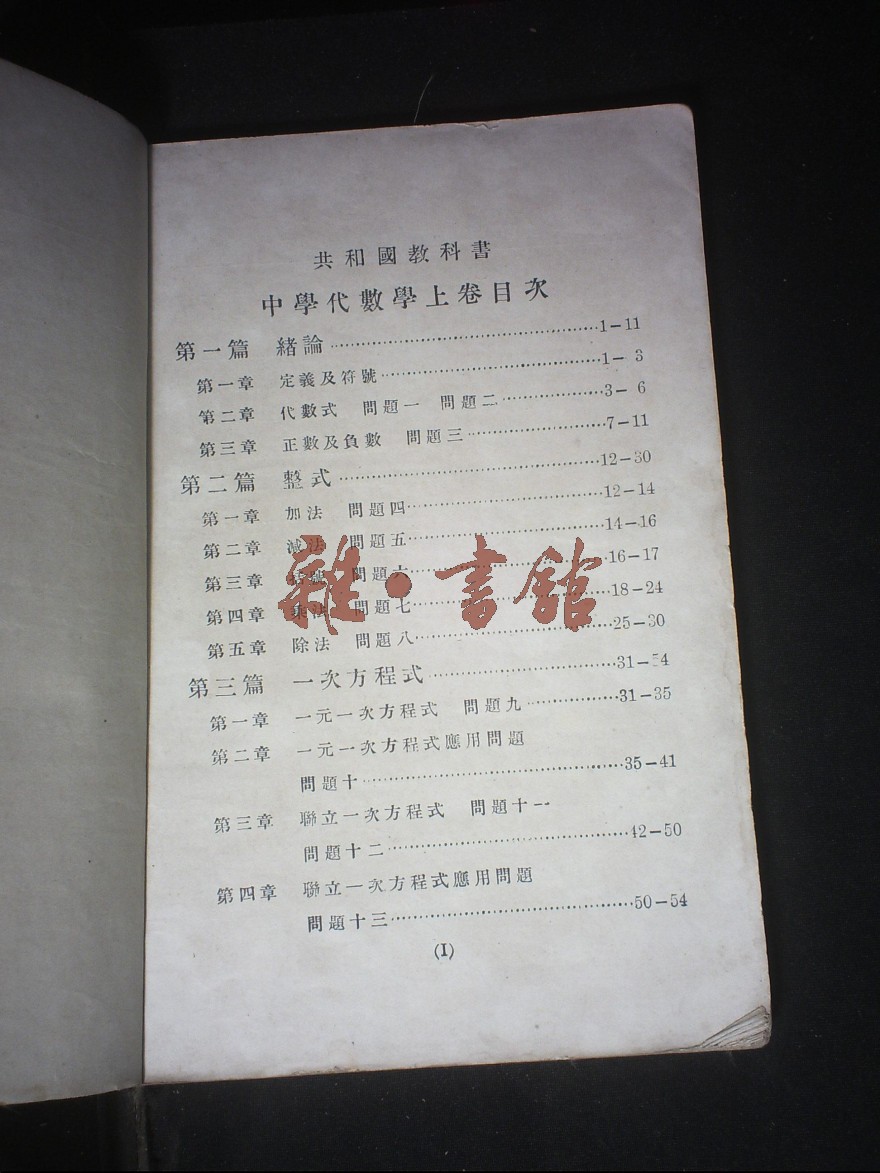 共和國教科書
中學代數學上卷目次
第一篇 緒論 1-11
第一章 定義及符號 1-3
第二章 代數式 問題一 問題二 3-6
第三章 正數及負數 問題三 7-11
第二篇 整式 12-30
第一章 加法 問題四 12-14
第二章 減法 問題五 14-16
第三章 括號 問題六 16-17
第四章 乘法 問題七 18-24
第五章 除法 問題八 25-30
第三篇 一次方程式 31-54
第一章 一元一次方程式 問題九 31-35
第二章 一元一次方程式應用問題
問題十 35-41
第三章 聯立一次方程式 問題十一
問題十二 42-50
第四章 聯立一次方程式應用問題
問題十三 50-54
(I)
雜·書館